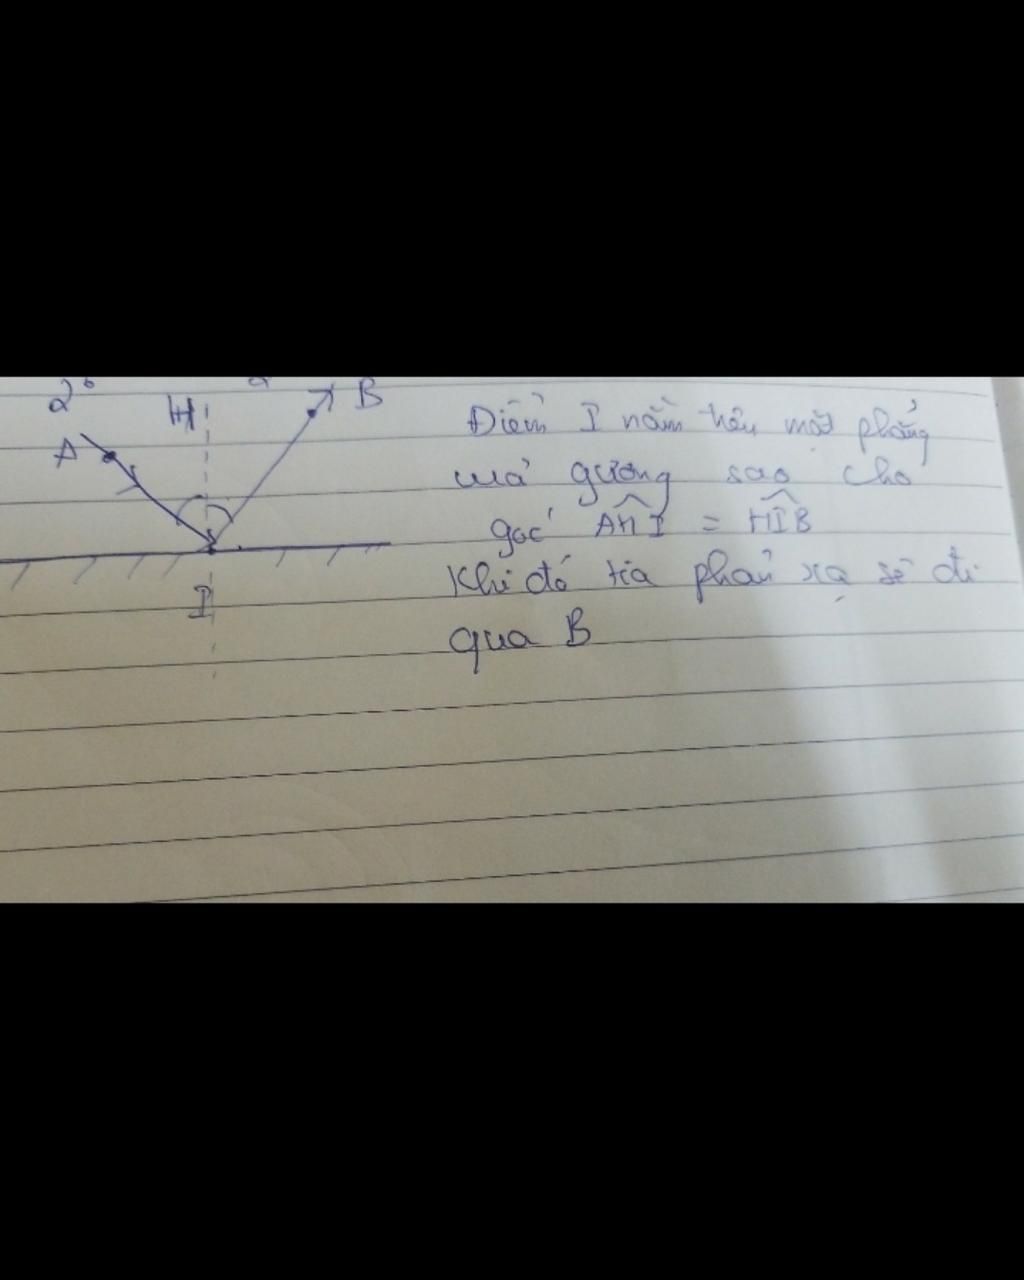 2⁰
H
B
A
I
Điểm I nằm trên mặt phẳng
của gương sao cho
góc AHI = HIB
Khi đó tia phản xạ sẽ đi
qua B